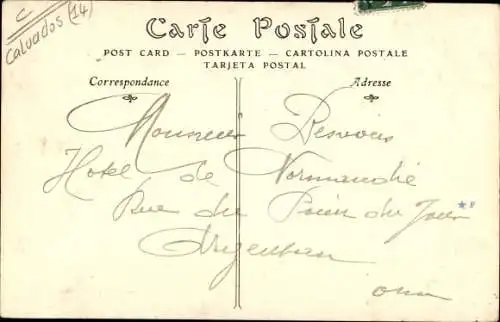 C
Calvados (14)
Carte Postale
POST CARD — POSTKARTE — CARTOLINA POSTALE
TARJETA POSTAL
Correspondance
Adresse
Monsieur
Hotel de Normandie
Rue du Point du Jour
Argentan
Orne